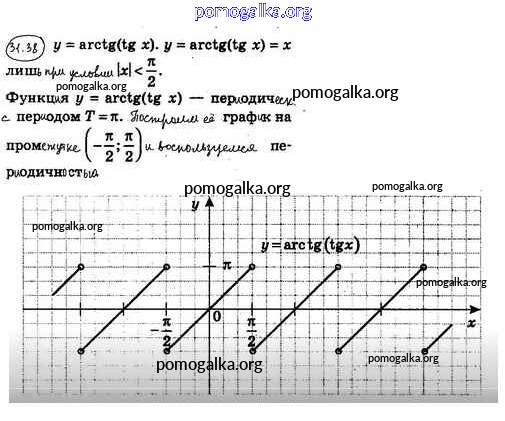 pomogalka.org
31.38 y = arctg(tg x). y = arctg(tg x) = x
лишь при условии |x| < π/2.
pomogalka.org
Функция y = arctg(tg x) — периодическ.
pomogalka.org
с периодом T = π. Построим её график на
промежутке (−π/2; π/2) и воспользуемся пе-
риодичностью
pomogalka.org
pomogalka.org
y
pomogalka.org
y = arctg(tgx)
π
pomogalka.org
−π/2 0 π/2 x
pomogalka.org
pomogalka.org